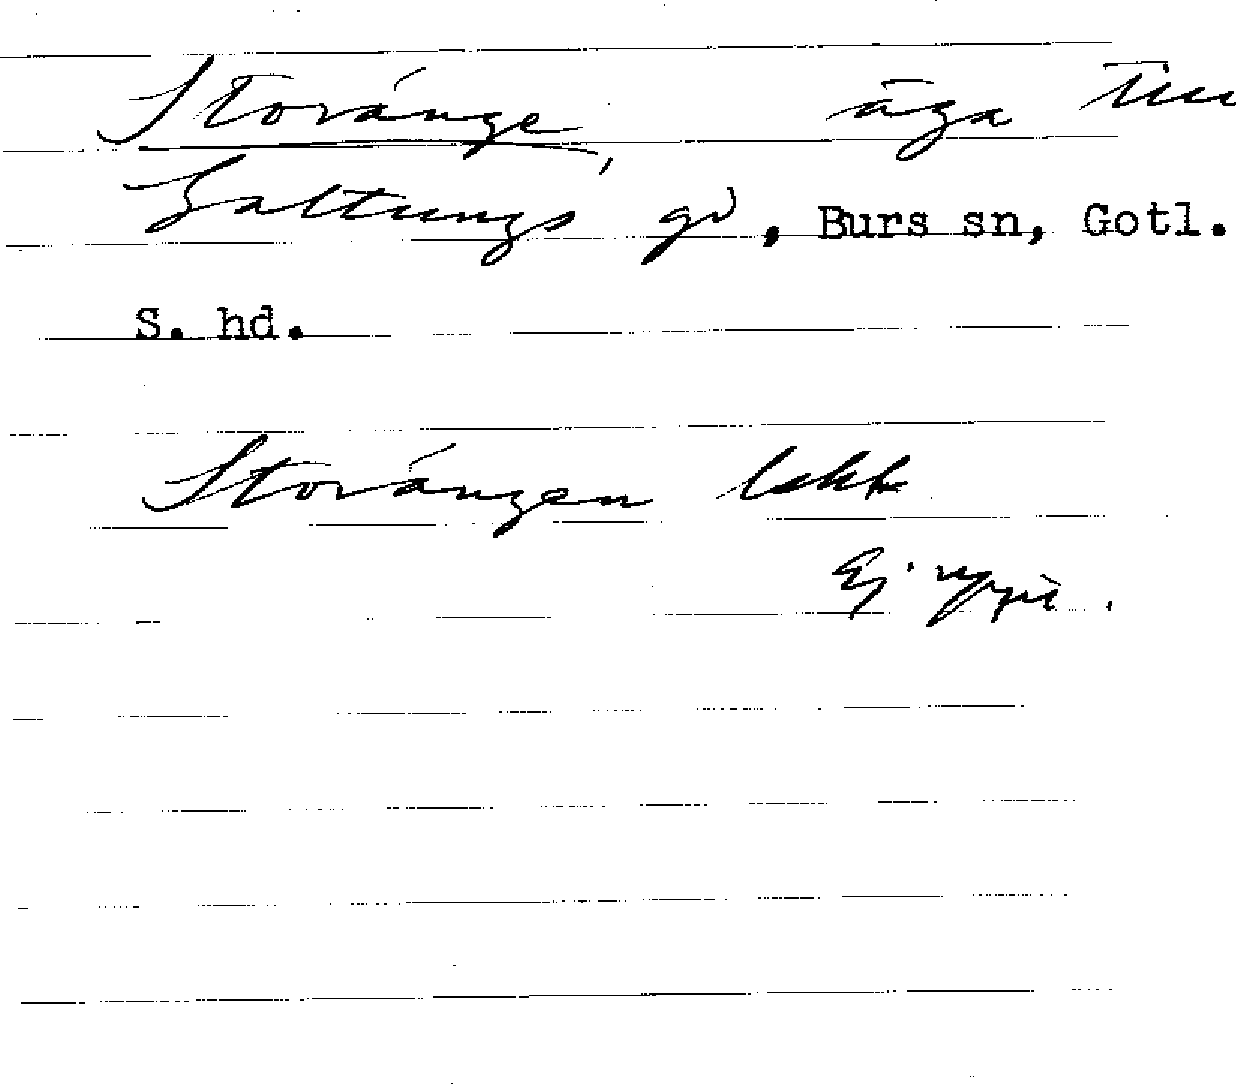 Storänge, äga till
Galtungs gd, Burs sn, Gotl.
S. hd.
Storängen
Ej uppt.